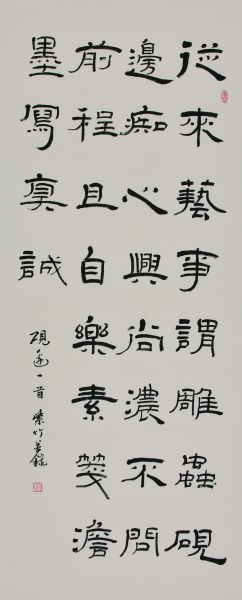 從來藝事謂雕蟲硯
邊痴心興尚濃不問
前程且自樂素箋澹
墨寫真誠
硯邊一首 紫竹並錄